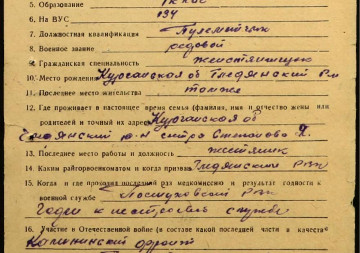 5. Образование 7 клас
6. На ВУС 134
7. Должностная квалификация Пулеметчик
8. Военное звание рядовой
9. Гражданская специальность жестянщик
10. Место рождения Курганская об Глядянский Р-н
11. Последнее место жительства тоже
12. Где проживает в настоящее время семья (фамилия, имя и отчество жены или
родителей и точный их адрес) Курганская об
Глядянский р-н сестра Степанова
13. Последнее место работы и должность жестяник
14. Каким райгорвоенкоматом и когда призван Глядянским РВК
15. Когда и где проходил последний раз медкомиссию и результат годности к
военной службе РВК
Годен к строевой службе
16. Участие в Отечественной войне (в составе какой последней части и качестве)
Калининский фронт